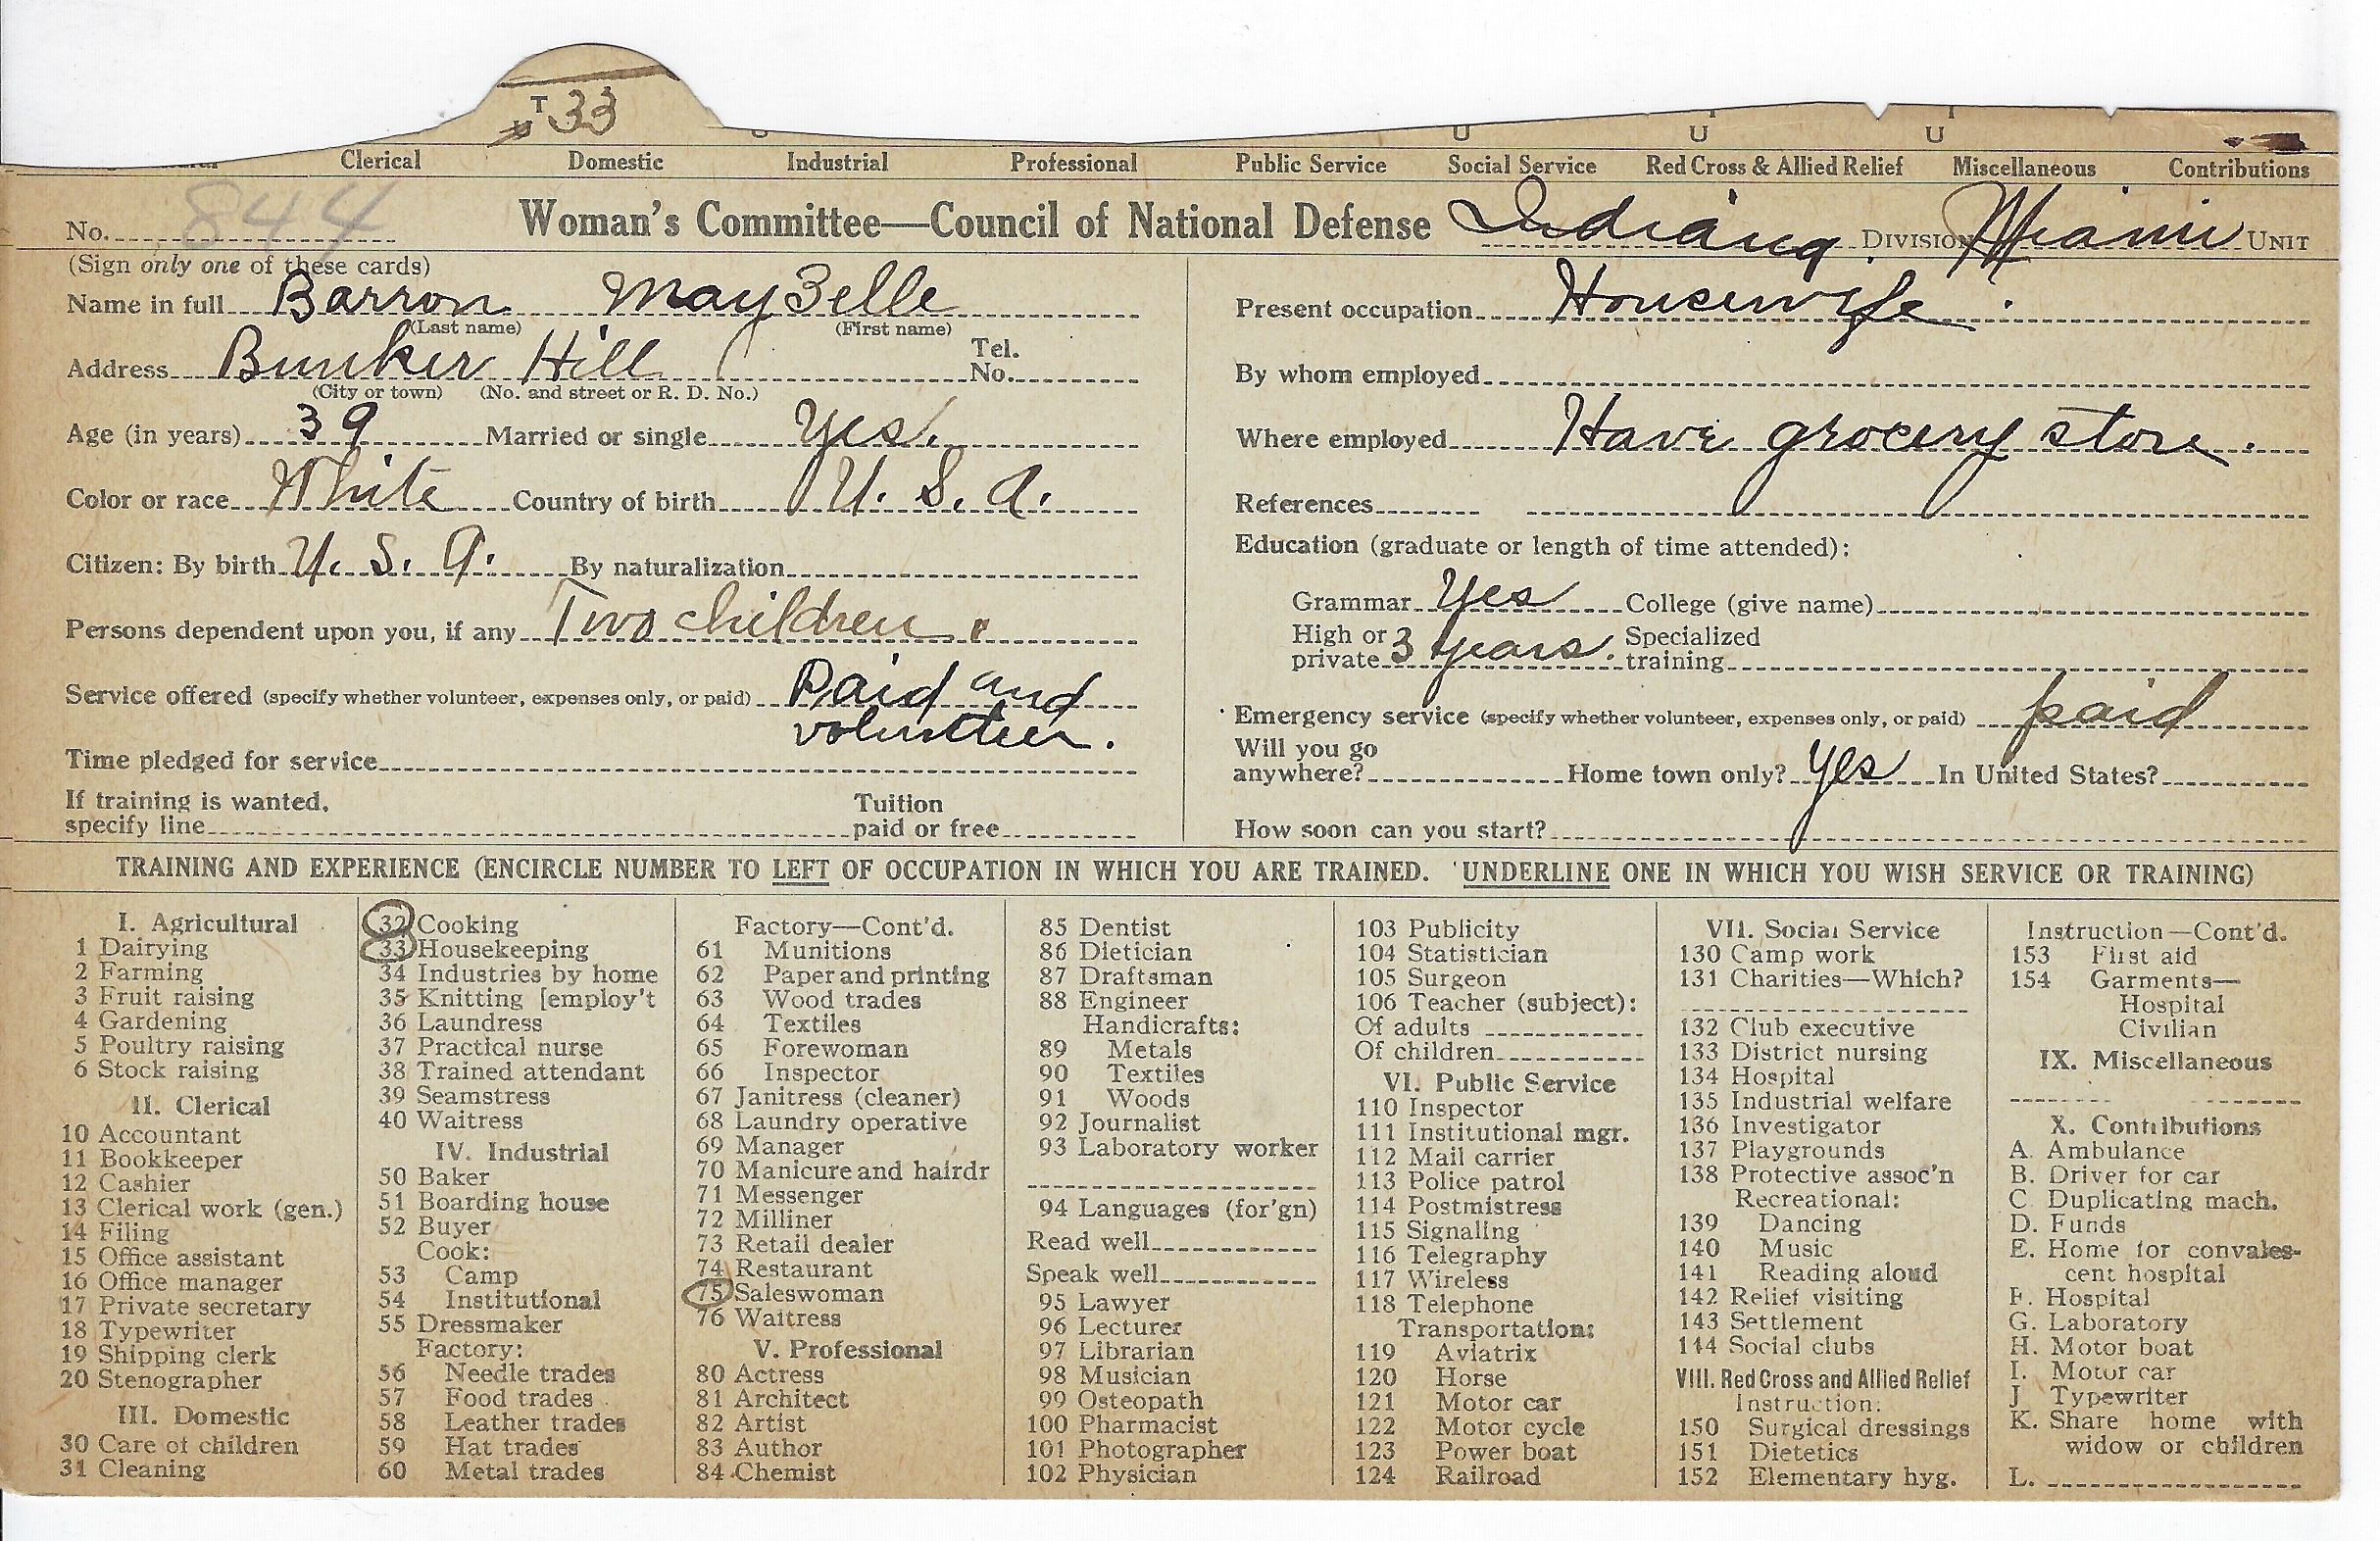 T 33
U U U
Clerical Domestic Industrial Professional Public Service Social Service Red Cross & Allied Relief Miscellaneous Contributions
No. 844 Woman's Committee—Council of National Defense Indiana Division Miami Unit
(Sign only one of these cards)
Name in full Barron May Belle
(Last name) (First name)
Address Bunker Hill Tel. No.
(City or town) (No. and street or R. D. No.)
Age (in years) 39 Married or single Yes.
Color or race White Country of birth U. S. A.
Citizen: By birth U. S. A. By naturalization
Persons dependent upon you, if any Two children.
Service offered (specify whether volunteer, expenses only, or paid) Paid and
volunteer.
Time pledged for service
If training is wanted,
specify line Tuition paid or free
Present occupation Housewife.
By whom employed
Where employed Have grocery store.
References
Education (graduate or length of time attended):
Grammar Yes College (give name)
High or private 3 years. Specialized training
Emergency service (specify whether volunteer, expenses only, or paid) paid
Will you go
anywhere? Home town only? Yes In United States?
How soon can you start?
TRAINING AND EXPERIENCE (ENCIRCLE NUMBER TO LEFT OF OCCUPATION IN WHICH YOU ARE TRAINED. UNDERLINE ONE IN WHICH YOU WISH SERVICE OR TRAINING)
I. Agricultural
1 Dairying
2 Farming
3 Fruit raising
4 Gardening
5 Poultry raising
6 Stock raising
II. Clerical
10 Accountant
11 Bookkeeper
12 Cashier
13 Clerical work (gen.)
14 Filing
15 Office assistant
16 Office manager
17 Private secretary
18 Typewriter
19 Shipping clerk
20 Stenographer
III. Domestic
30 Care of children
31 Cleaning
32 Cooking
33 Housekeeping
34 Industries by home
35 Knitting [employ't
36 Laundress
37 Practical nurse
38 Trained attendant
39 Seamstress
40 Waitress
IV. Industrial
50 Baker
51 Boarding house
52 Buyer
Cook:
53 Camp
54 Institutional
55 Dressmaker
Factory:
56 Needle trades
57 Food trades
58 Leather trades
59 Hat trades
60 Metal trades
Factory—Cont'd.
61 Munitions
62 Paper and printing
63 Wood trades
64 Textiles
65 Forewoman
66 Inspector
67 Janitress (cleaner)
68 Laundry operative
69 Manager
70 Manicure and hairdr
71 Messenger
72 Milliner
73 Retail dealer
74 Restaurant
75 Saleswoman
76 Waitress
V. Professional
80 Actress
81 Architect
82 Artist
83 Author
84 Chemist
85 Dentist
86 Dietician
87 Draftsman
88 Engineer
Handicrafts:
89 Metals
90 Textiles
91 Woods
92 Journalist
93 Laboratory worker
94 Languages (for'gn)
Read well
Speak well
95 Lawyer
96 Lecturer
97 Librarian
98 Musician
99 Osteopath
100 Pharmacist
101 Photographer
102 Physician
103 Publicity
104 Statistician
105 Surgeon
106 Teacher (subject):
Of adults
Of children
VI. Public Service
110 Inspector
111 Institutional mgr.
112 Mail carrier
113 Police patrol
114 Postmistress
115 Signaling
116 Telegraphy
117 Wireless
118 Telephone
Transportation:
119 Aviatrix
120 Horse
121 Motor car
122 Motor cycle
123 Power boat
124 Railroad
VII. Social Service
130 Camp work
131 Charities—Which?
132 Club executive
133 District nursing
134 Hospital
135 Industrial welfare
136 Investigator
137 Playgrounds
138 Protective assoc'n
Recreational:
139 Dancing
140 Music
141 Reading aloud
142 Relief visiting
143 Settlement
144 Social clubs
VIII. Red Cross and Allied Relief
Instruction:
150 Surgical dressings
151 Dietetics
152 Elementary hyg.
Instruction—Cont'd.
153 First aid
154 Garments—
Hospital
Civilian
IX. Miscellaneous
X. Contributions
A. Ambulance
B. Driver for car
C. Duplicating mach.
D. Funds
E. Home for convales-
cent hospital
F. Hospital
G. Laboratory
H. Motor boat
I. Motor car
J Typewriter
K. Share home with
widow or children
L.